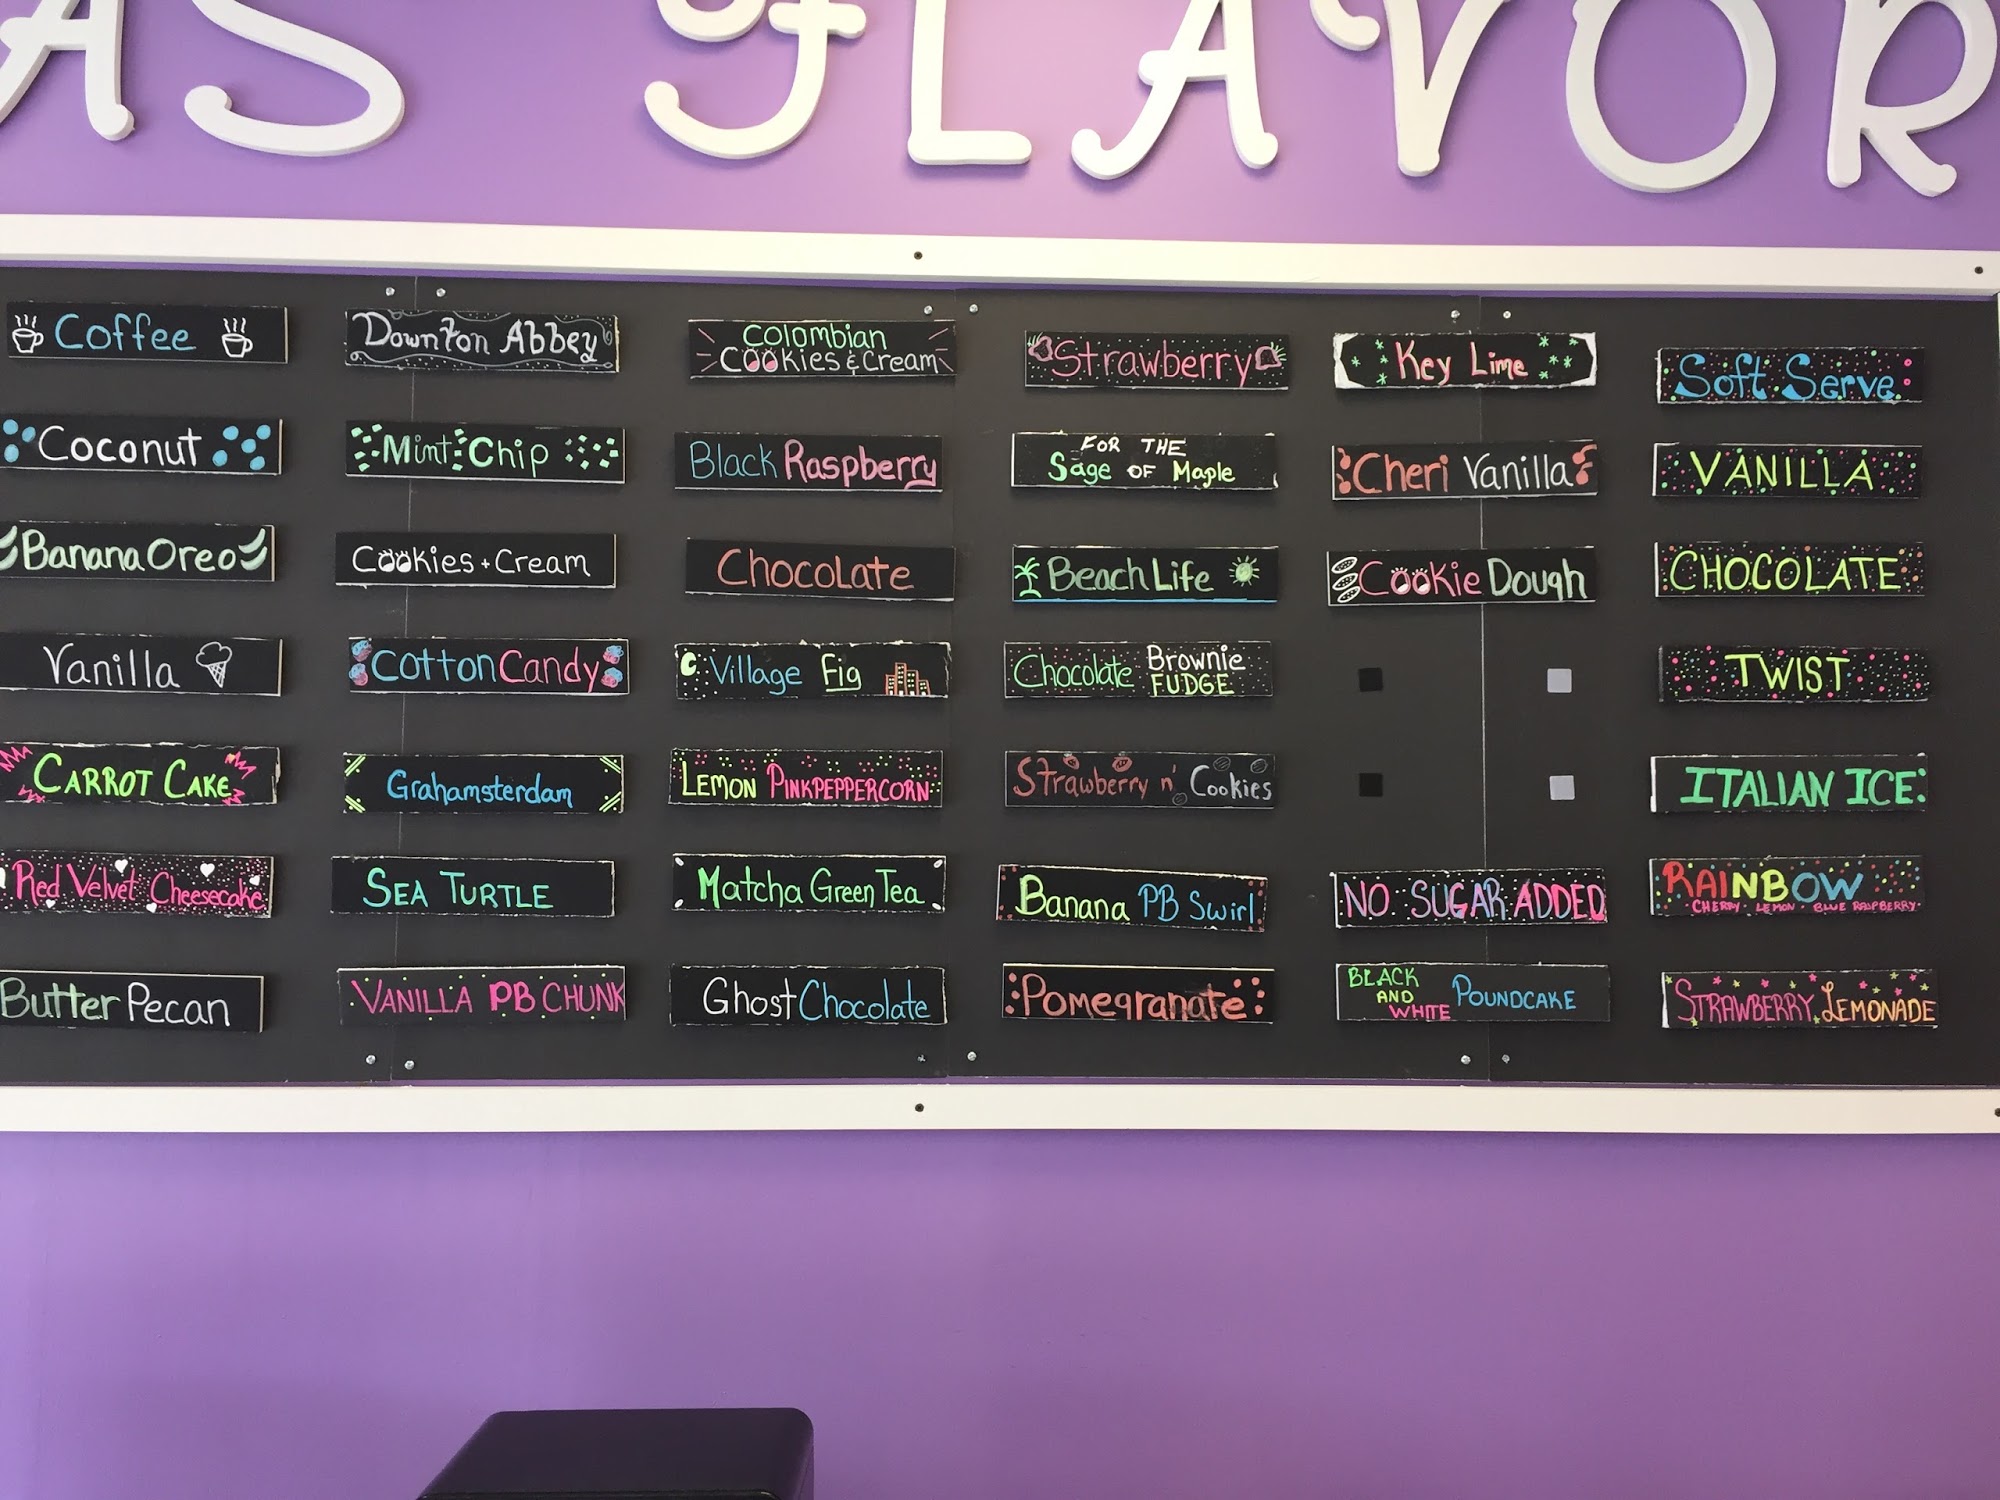 AS FLAVOR
Coffee
Coconut
Banana Oreo
Vanilla
CARROT CAKE
Red Velvet Cheesecake
Butter Pecan
Downton Abbey
Mint Chip
Cookies + Cream
Cotton Candy
Grahamsterdam
SEA TURTLE
VANILLA PB CHUNK
Colombian
Cookies & Cream
Black Raspberry
Chocolate
Village Fig
LEMON PINKPEPPERCORN
Matcha Green Tea
Ghost Chocolate
Strawberry
FOR THE
Sage OF Maple
Beach Life
Chocolate Brownie
FUDGE
Strawberry n' Cookies
Banana PB Swirl
Pomegranate
Key Lime
Cheri Vanilla
Cookie Dough
NO SUGAR ADDED
BLACK
AND
WHITE POUNDCAKE
Soft Serve
VANILLA
CHOCOLATE
TWIST
ITALIAN ICE:
RAINBOW
CHERRY · LEMON · BLUE RASPBERRY
STRAWBERRY LEMONADE